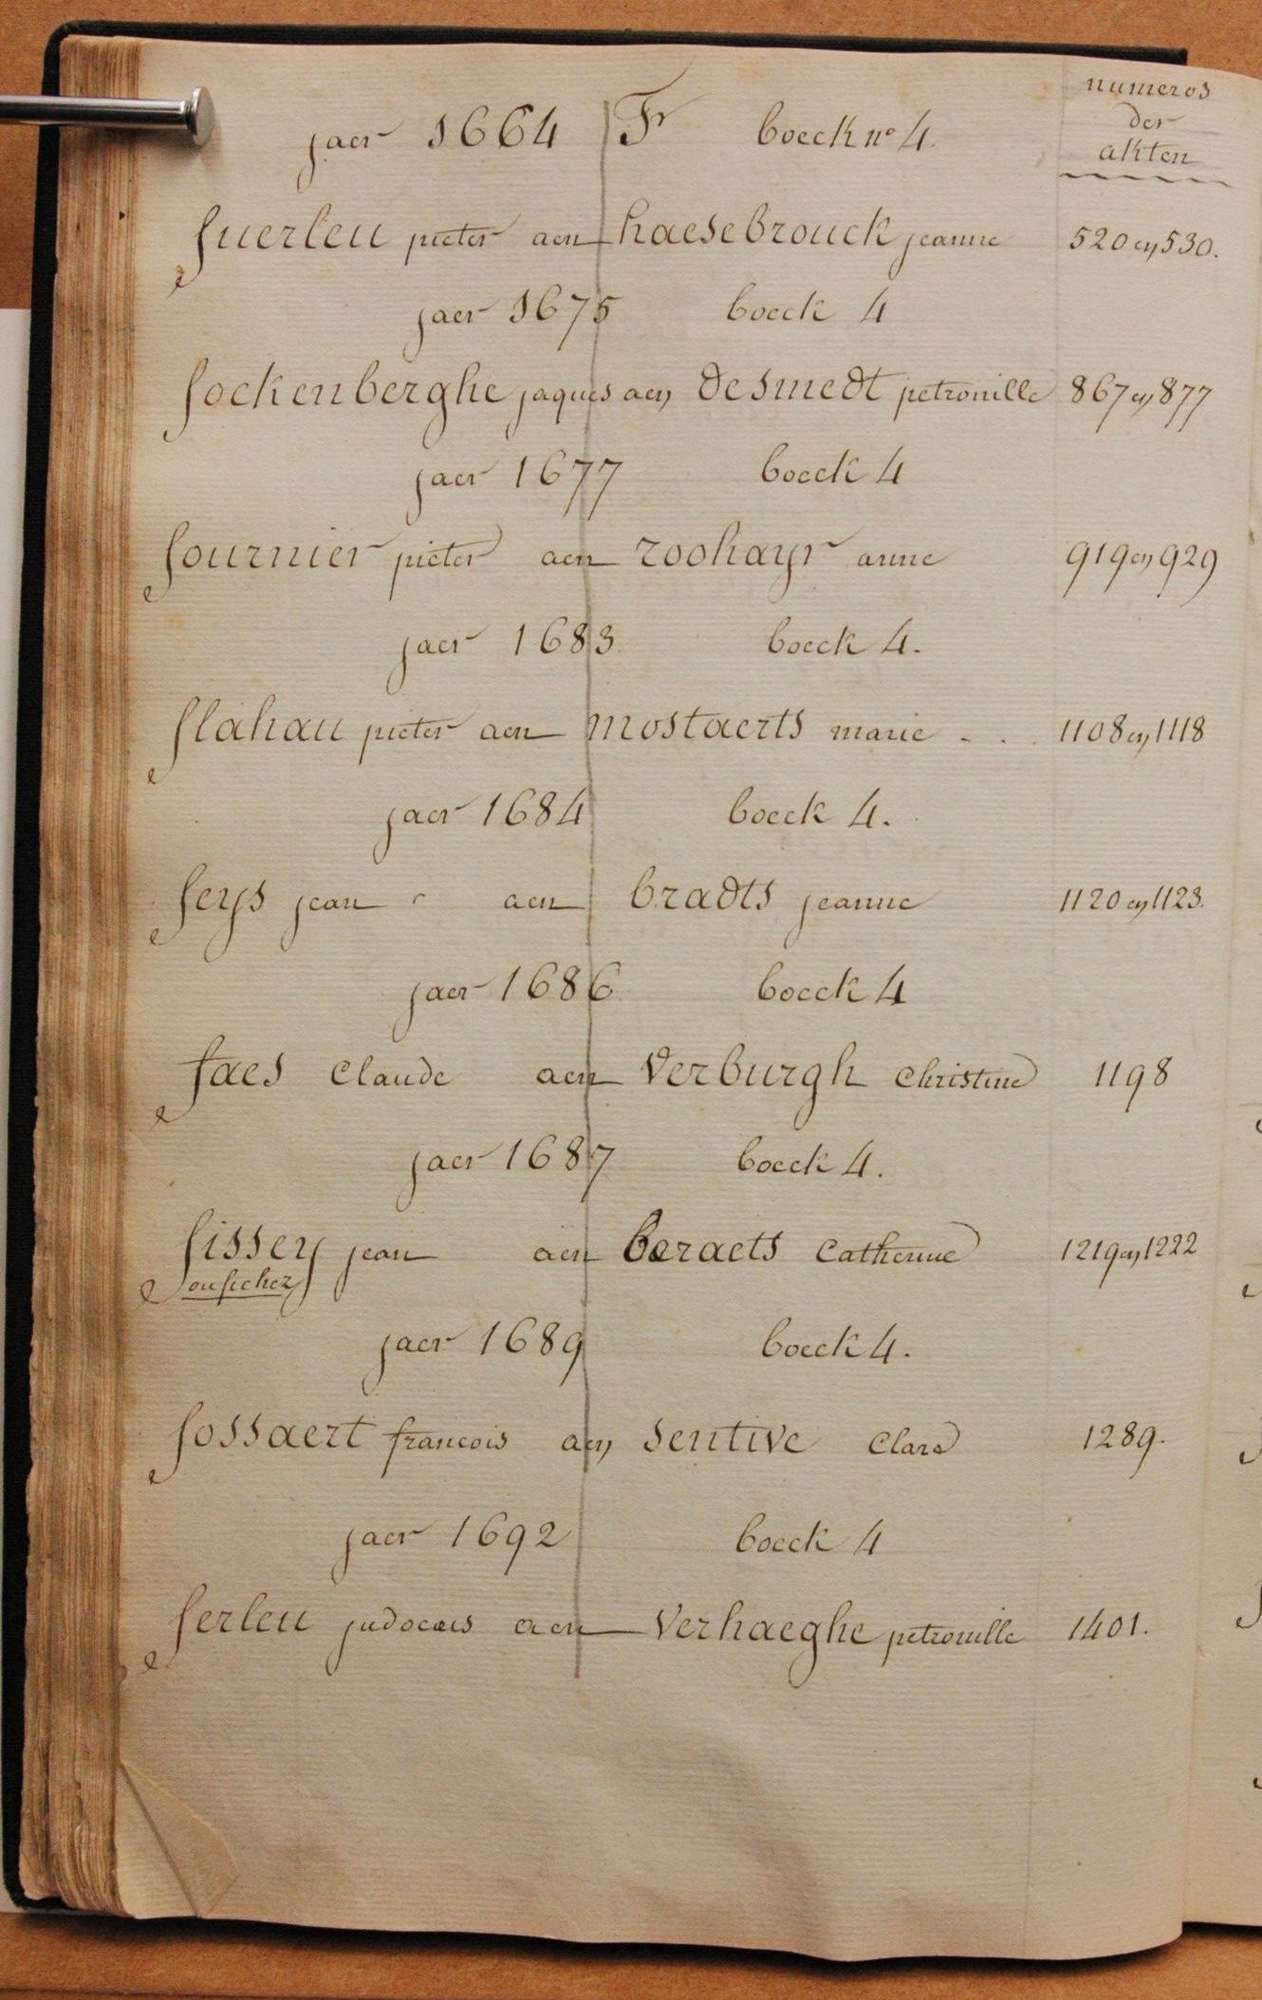 numeros
der
akten
jaer 1664 Fr boeck n° 4.
fuerleu pieter aen haesebrouck jeanne 520 en 530.
jaer 1675 boeck 4
fockenberghe jaques aen desmedt petronille 867 en 877
jaer 1677 boeck 4
fournier pieter aen roohayr anne 919 en 929
jaer 1683 boeck 4.
flahau pieter aen mostaerts marie - . . 1108 en 1118
jaer 1684 boeck 4.
feys jean aen bradts jeanne 1120 en 1123.
jaer 1686 boeck 4
faes Claude aen Verburgh Christine 1198
jaer 1687 boeck 4.
fissey jean aen beraets Catherine 1219 en 1222
ou fichez
jaer 1689 boeck 4.
fossaert francois aen sentive Clara 1289.
jaer 1692 boeck 4
ferleu judocus aen Verhaeghe petronille 1401.